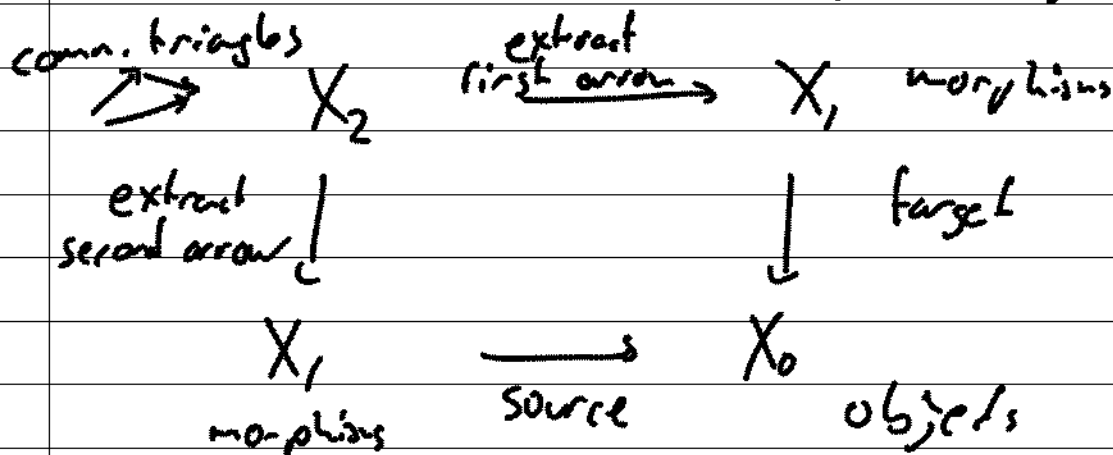 comm. triangles
extract
first arrow
X₂
X₁ morphisms
extract
second arrow
target
X₁
X₀
source
morphisms
objects